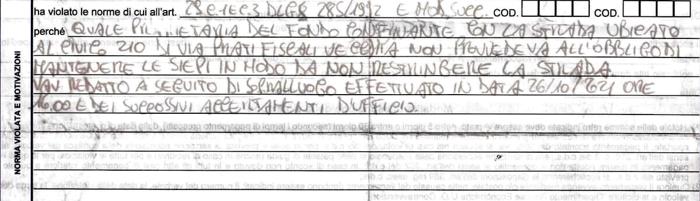 ha violato le norme di cui all'art. 29 c 1 e c 3 DLGS 285/1992 E MOD. SUCC. COD. COD.
perché QUALE PROPRIETARIA DEL FONDO CONFINANTE CON LA STRADA UBICATO
AL CIVICO 210 DI VIA PRATI FISCALI VECCHIA NON PROVVEDEVA ALL'OBBLIGO DI
MANTENERE LE SIEPI IN MODO DA NON RESTRINGERE LA STRADA.
VAV REDATTO A SEGUITO DI SOPRALLUOGO EFFETTUATO IN DATA 26/10/2021 ORE
16.00 E DEI SUCCESSIVI ACCERTAMENTI D'UFFICIO.
NORMA VIOLATA E MOTIVAZIONI